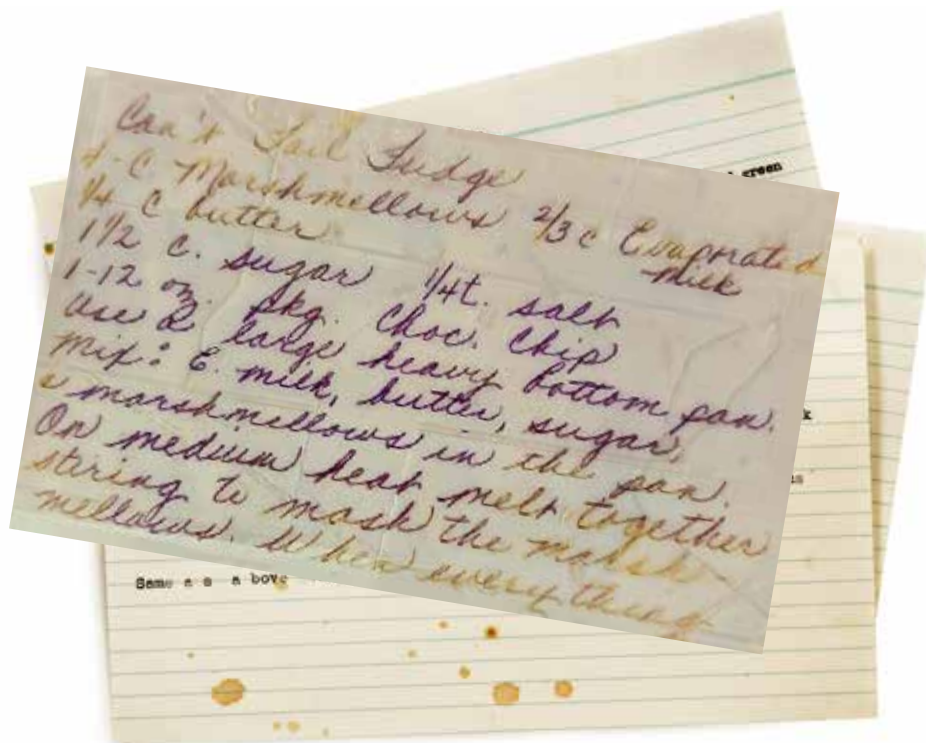 green
Can't Fail Fudge
C Marshmellows 2/3 c Evaporated
Milk
1/4 C butter
1 1/2 C. sugar 1/4 t. salt
1-12 oz. pkg. Choc. Chip
Use a large heavy bottom pan.
Mix: E. milk, butter, sugar,
marshmellows in the pan.
On medium heat melt together
stiring to mash the marsh-
mellows. When everything
Same a s a bove